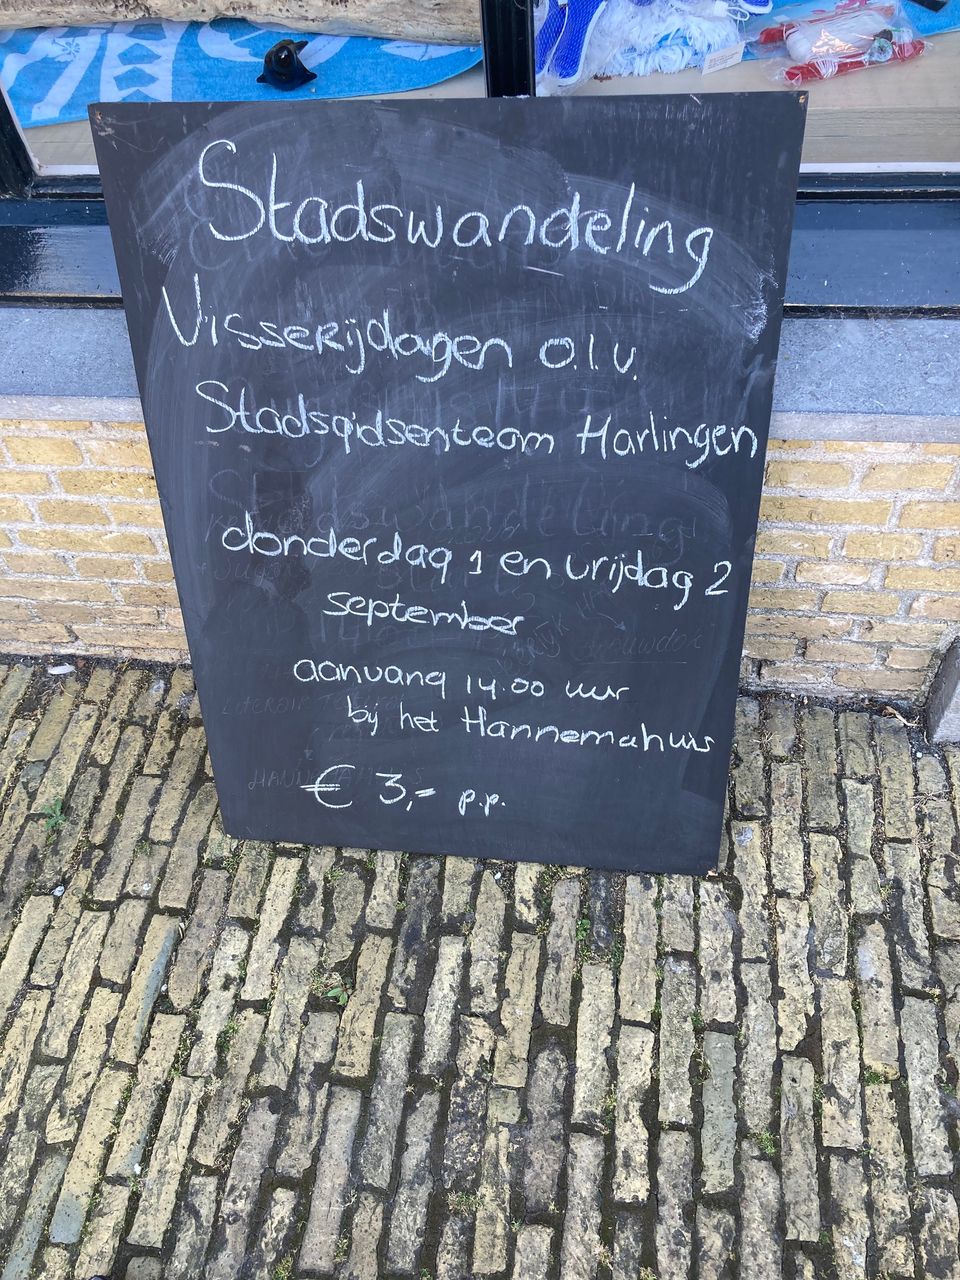 Stadswandeling
Visserijdagen o.l.v.
Stadsgidsenteam Harlingen
donderdag 1 en vrijdag 2
september
aanvang 14.00 uur
bij het Hannemahuis
€ 3,- p.p.